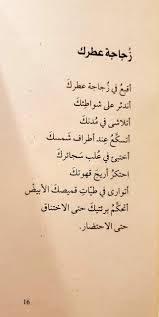 زُجاجة عطرك
أقبعُ في زُجاجة عطركَ
أندثر على شواطئِكَ
أتلاشى في مُدنكَ
أتسكّعُ عند أطراف شمسكَ
أختبئ في عُلب سجائركَ
احتكرُ أريجَ قهوتكَ
أتوارى في طيّاتِ قميصكَ الأبيضْ
أتحكّمُ برئتيكَ حتى الاختناق
حتى الاحتضار.
16